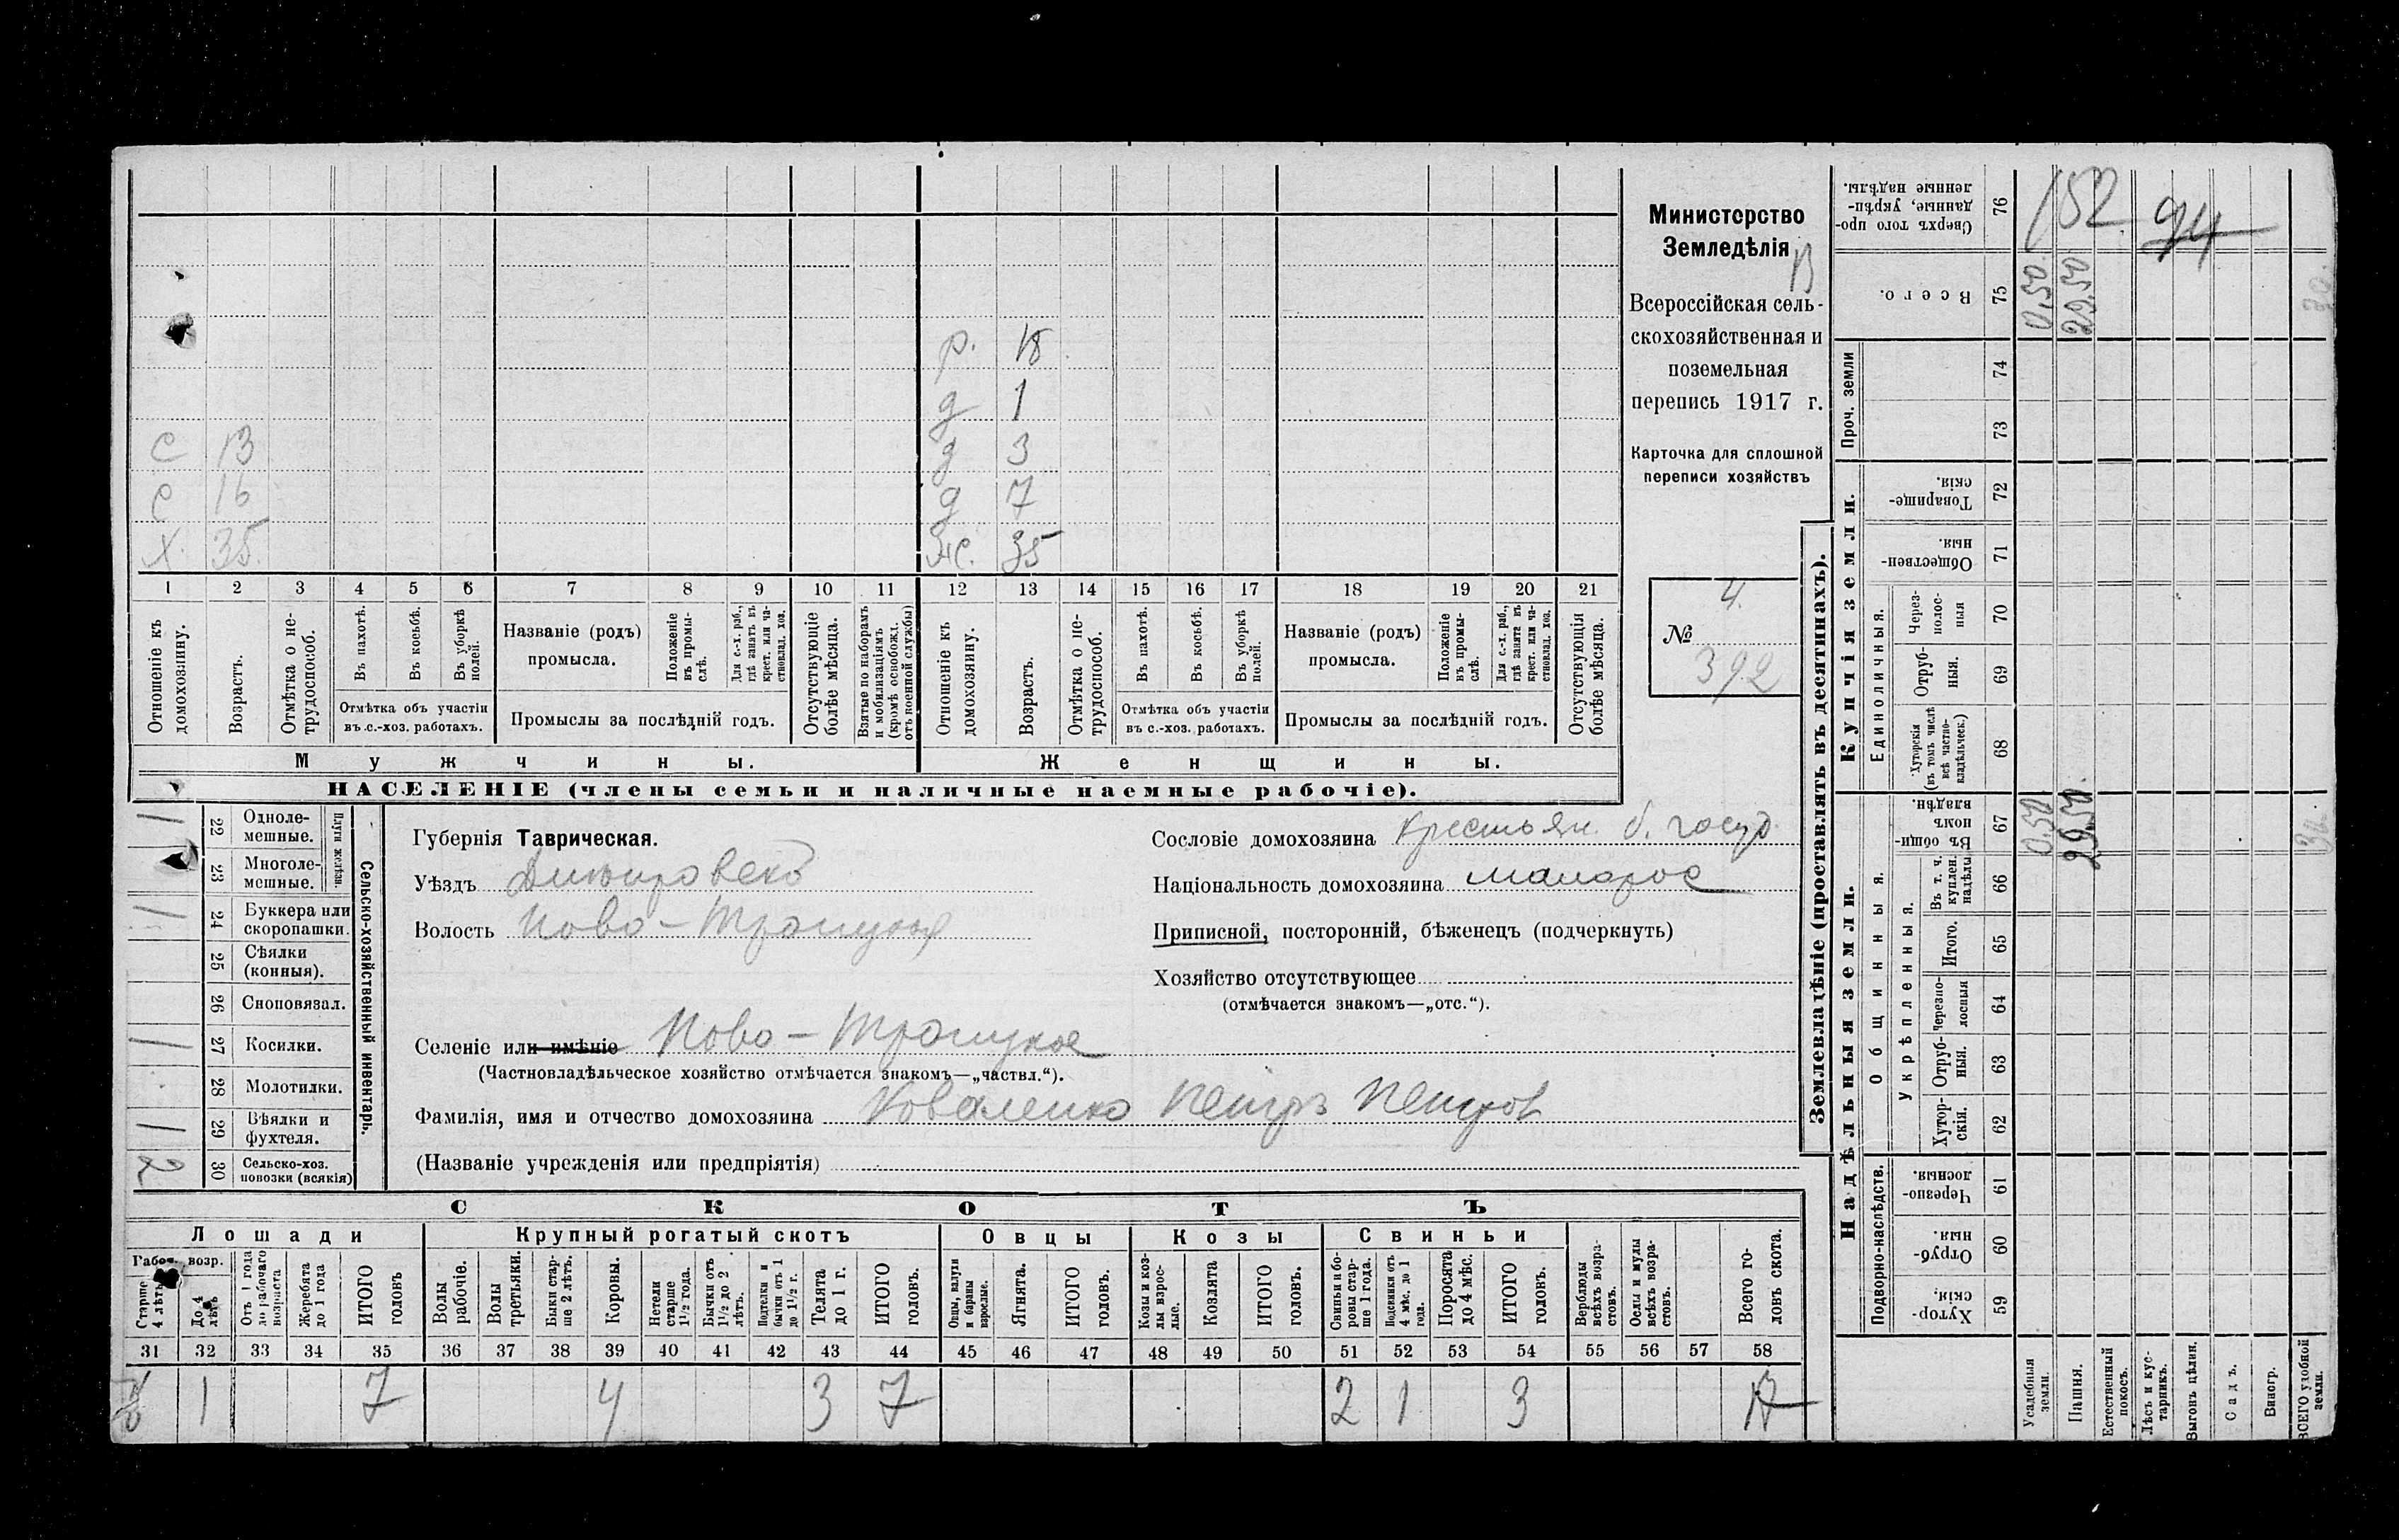 Министерство
Земледѣлія
В
Всероссійская сель-
скохозяйственная и
поземельная
перепись 1917 г.
Карточка для сплошной
переписи хозяйствъ
№
4.
392
р. 18
д 1
С 13 д 3
С 16 д 7
Х. 35. Ж. 35
1 2 3 4 5 6 7 8 9 10 11 12 13 14 15 16 17 18 19 20 21
Отношеніе къ домохозяину.
Возрастъ.
Отмѣтка о не-трудоспособ.
Въ пахотѣ.
Въ косьбѣ.
Въ уборкѣ полей.
Отмѣтка объ участіи
въ с.-хоз. работахъ.
Названіе (родъ)
промысла.
Положеніе въ промы-слѣ.
Для с.-х. раб., гдѣ занятъ въ крест. или ча-стновлад. хоз.
Промыслы за послѣдній годъ.
Отсутствующіе болѣе мѣсяца.
Взятые по наборамъ и мобилизаціямъ (кромѣ освобожд. отъ военной службы)
Отношеніе къ домохозяину.
Возрастъ.
Отмѣтка о не-трудоспособ.
Въ пахотѣ.
Въ косьбѣ.
Въ уборкѣ полей.
Отмѣтка объ участіи
въ с.-хоз. работахъ.
Названіе (родъ)
промысла.
Положеніе въ промы-слѣ.
Для с.-х. раб., гдѣ занята въ крест. или ча-стновлад. хоз.
Промыслы за послѣдній годъ.
Отсутствующія болѣе мѣсяца.
Мужчины. Женщины.
НАСЕЛЕНІЕ (члены семьи и наличные наемные рабочіе).
Сельско-хозяйственный инвентарь.
Плуги желѣзн.
1 22 Одноле-мешные.
23 Многоле-мешные.
1 24 Буккера или скоропашки.
25 Сѣялки (конныя).
26 Сноповязал.
1 27 Косилки.
28 Молотилки.
1 29 Вѣялки и фухтеля.
2 30 Сельско-хоз. повозки (всякія)
Губернія Таврическая.
Уѣздъ Днѣпровскѣ
Волость Ново-Троицкая
Селеніе или имѣніе Ново-Троицкое
(Частновладѣльческое хозяйство отмѣчается знакомъ—„частвл.“).
Фамилія, имя и отчество домохозяина Коваленко Петръ Петров
(Названіе учрежденія или предпріятія)
Сословіе домохозяина крестьян. б. госуд.
Національность домохозяина малорос
Приписной, посторонній, бѣженецъ (подчеркнуть)
Хозяйство отсутствующее
(отмѣчается знакомъ—„отс.“).
СКОТЪ
Лошади Крупный рогатый скотъ Овцы Козы Свиньи
Рабоч. возр.
Старше 4 лѣтъ
До 4 лѣтъ
Отъ 1 года до рабочаго возраста
Жеребята до 1 года
ИТОГО головъ
Волы рабочіе.
Волы третьяки.
Быки стар-ше 2 лѣтъ.
Коровы.
Нетели старше 1½ года.
Бычки отъ 1½ до 2 лѣтъ.
Подтелки и бычки отъ 1 до 1½ г.
Телята до 1 г.
ИТОГО головъ.
Овцы, валухи и бараны взрослые.
Ягнята.
ИТОГО головъ.
Козы и коз-лы взрос-лые.
Козлята
ИТОГО головъ.
Свиньи и бо-ровы стар-ше 1 года.
Подсвинки отъ 4 мѣс. до 1 года.
Поросята до 4 мѣс.
ИТОГО головъ.
Верблюды всѣхъ возра-стовъ.
Ослы и мулы всѣхъ возра-стовъ.
Всего го-ловъ скота.
31 32 33 34 35 36 37 38 39 40 41 42 43 44 45 46 47 48 49 50 51 52 53 54 55 56 57 58
1 7 4 3 7 2 1 3 17
Землевладѣніе (проставлять въ десятинахъ).
Надѣльныя земли.
Купчія земли.
Проч. земли
Подворно-наслѣдств.
Общинныя.
Укрѣпленныя.
Единоличныя.
76 Сверхъ того про-данные, укрѣп-ленные надѣлы.
152 94
75 Всего. 0,50 29,50 30.
74
73
72 Товарище-скія.
71 Обществен-ныя.
70 Через-полос-ныя
69 Отруб-ныя.
68 Хуторскія (въ томъ числѣ всѣ частно-владѣльческ.)
67 Въ общин-номъ владѣн. 0,50 29,50. 30.
66 Въ т. ч. куплен. надѣлы
65 Итого.
64 Черезпо-лосныя
63 Отруб-ныя.
62 Хутор-скія.
61 Черезпо-лосныя.
60 Отруб-ныя.
59 Хутор-скія.
Усадебныя земли.
Пашня.
Естественный покосъ.
Лѣсъ и кус-тарникъ.
Выгонъ цѣлин.
Садъ.
Виногр.
ВСЕГО удобной земли.